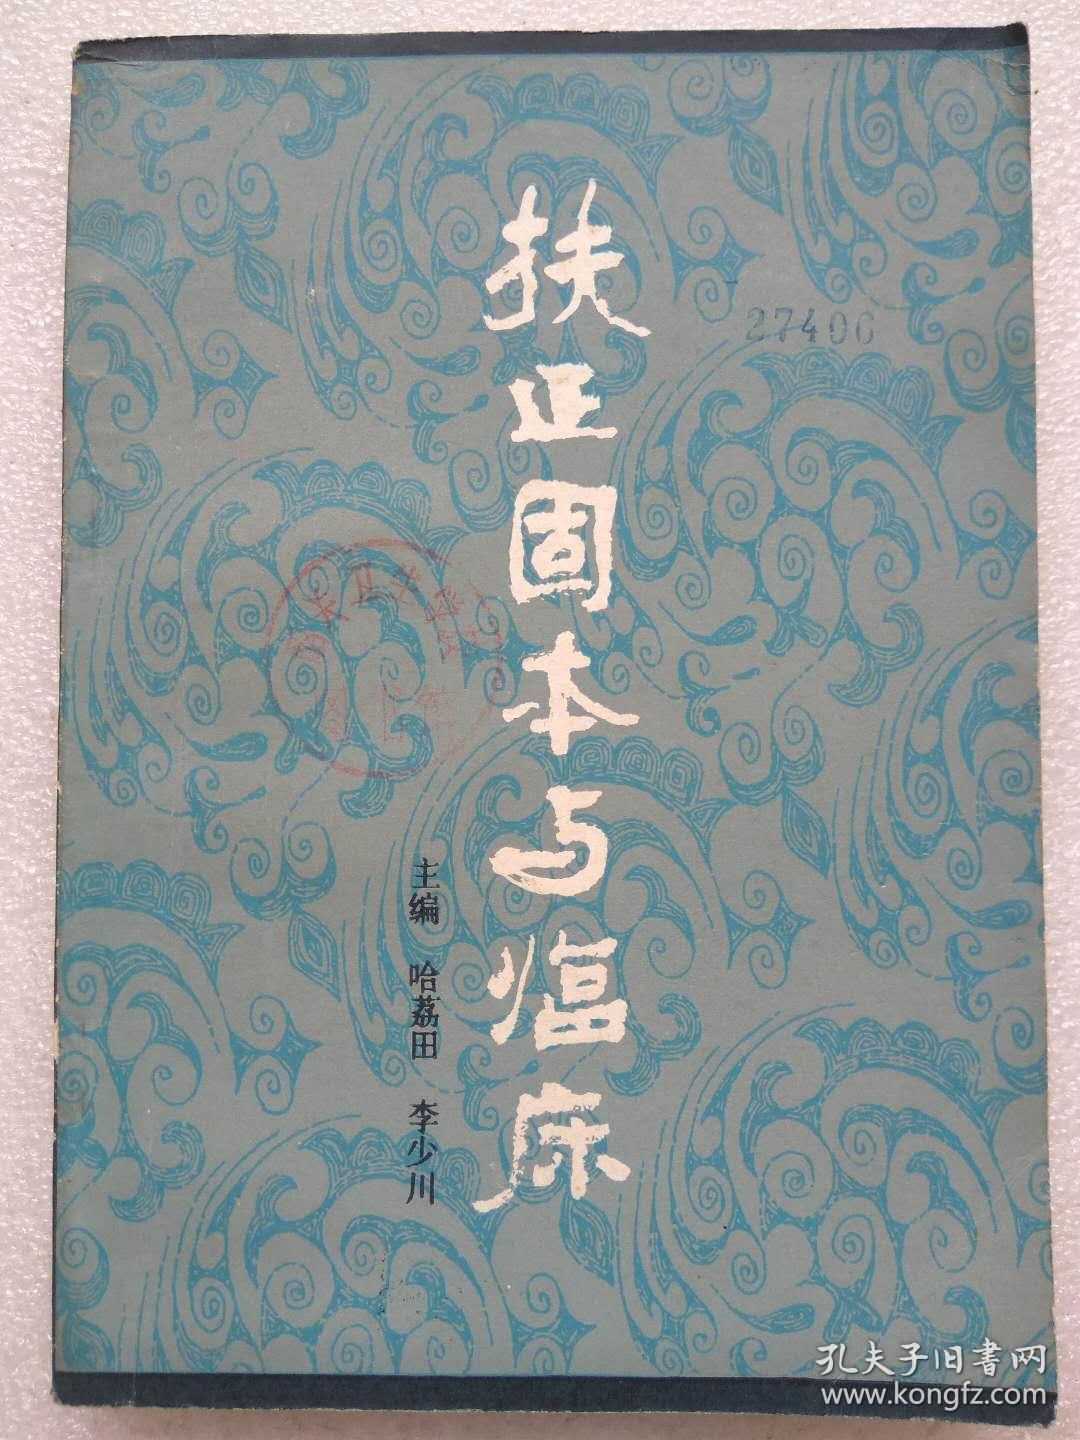 扶正固本与临床
27406
主编 哈荔田 李少川
孔夫子旧书网
www.kongfz.com